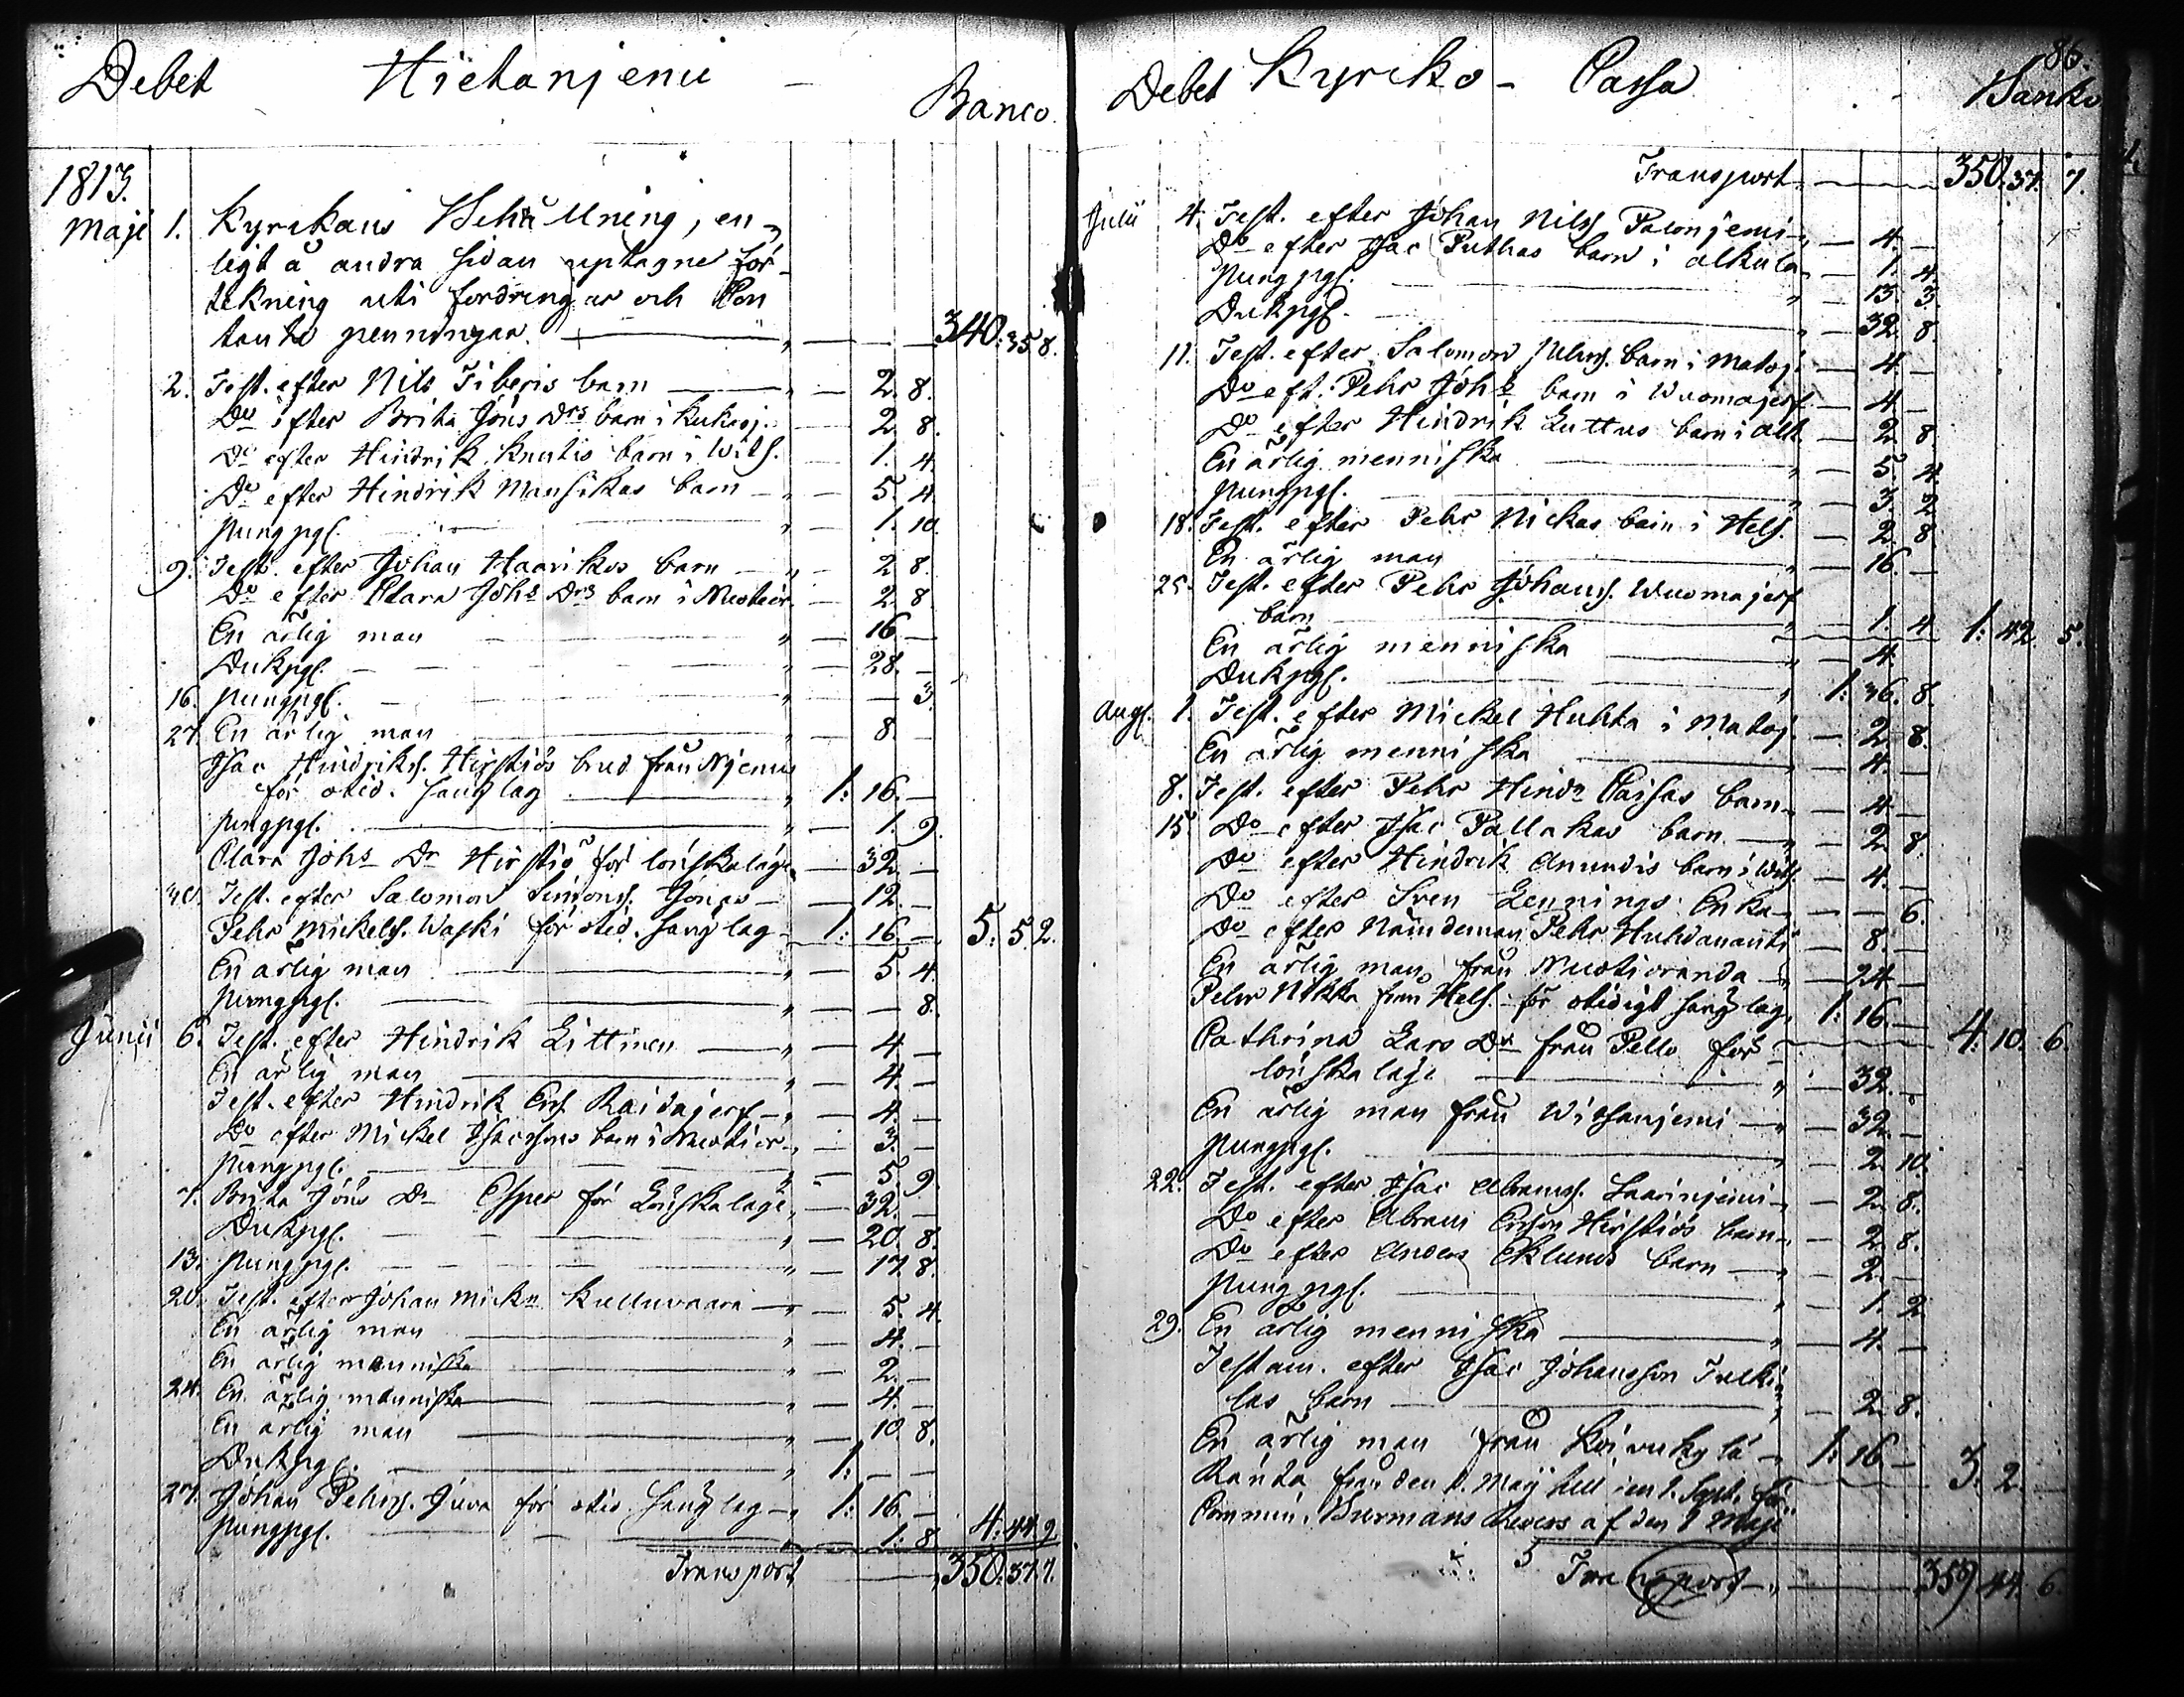 Debet Hietanjemi - Banco.
1813.
Maji 1. Kyrckans Behållning, en-
ligt å andra sidan uptagne för-
tekning uti fordringar och Con
tanta penningar. 340: 35 8.
2. Test. efter Nils Fiberis barn 2. 8.
Do efter Brita Jöns Drs barn i Kukasj. 2. 8.
Do efter Hindrik Knutis barn i Wits. 1. 4.
Do efter Hindrik Mansikas barn 5. 4.
pungpgr. 1. 10.
9. Test. efter Johan Haarikos barn 2. 8.
Do efter Clara Johs Drs barn i Nuotior. 2. 8
En ärlig man 16. —
Dukpgr. 28. —
16. pungpgr. — 3.
27. En ärlig man 8. —
Isac Hindrikss. Hirstiös brud från Njemis
för otid. sänglag 1: 16. —
pungpgr. 1. 9.
Clara Johs Dr Hirstiö för lönskaläge 32. —
30. Test. efter Salomon Simonss. 12. —
Pehr Mickelss. Waski för otid. sänglag 1: 16. — 5: 5 2.
En ärlig man 5. 4.
pungpgr. — 8.
Junii 6. Test. efter Hindrik Littinen 4. —
En ärlig man 4. —
Test. efter Hindrik Ers. Raidajerf 4. —
Do efter Mickel Isacssons barn i Nuotior. 3. —
pungpgr. 5. 9.
7. Brita Jöns Dr Esper för Lönskaläge 32. —
Dukpgr. 20. 8.
13. pungpgr. 17. 8.
20. Test. efter Johan Mickn Kulluvaara 5. 4.
En ärlig man 4. —
En ärlig menniska 2. —
24. En ärlig menniska 4. —
En ärlig man 10. 8.
Dukpgr. 1: — —
27. Johan Pehrss. Juva för otid. sänglag 1: 16. —
pungpgr. 1: 8. 4: 44. 9
Transport 350: 37. 7.
86.
Debet Kyrcko - Cassa Banko
Transport 350: 37. 7.
Julii 4. Test. efter Johan Nilss. Palonjemi 4. —
Do efter Isac Puthas barn i Alkula 1. 4.
pungpgr. 13. 3.
Dukpgr. 32. 8.
11. Test. efter Salomon Pehrss. barn i Matoj. 4. —
Do eft. Pehr Johs barn i Wuomajerf 4. —
Do efter Hindrik Luttus barn i Alk. 2. 8.
En ärlig menniska 5. 4.
pungpgr. 3. 2.
18. Test. efter Pehr Nickas barn i Hels. 2. 8.
En ärlig man 16. —
25. Test. efter Pehr Johanss. Wuomajerf
barn 1. 4. 1: 42. 5.
En ärlig menniska 4. —
Dukpgr. 1: 36. 8.
Aug. 1. Test. efter Mickel Huhta i Matoj. 2. 8.
En ärlig menniska 4. —
8. Test. efter Pehr Hindn Paisas barn 4. —
15 Do efter Isac Pallakas barn 2. 8.
Do efter Hindrik Anundis barn i Wits. 4. —
Do efter Sven Lennings Enka — 6.
Do efter Nämdeman Pehr Huhdananti 8. —
En ärlig man från Nuotioranda 24. —
Pehr Nikka från Hels. för otidigt sänglag 1: 16. —
Cathrina Lars Dr från Pello för 4: 10. 6
lönskaläge 32. —
En ärlig man från Witsanjemi 32. —
pungpgr. 2. 10.
22. Test. efter Isac Abramss. Saarinjemi 2. 8.
Do efter Abram Ersson Hirstiös barn 2. 8.
Do efter Anders Eklunds barn 2. —
pungpgr. 1. 2.
29. En ärlig menniska 4. —
Testam. efter Isac Johansson Tulki-
las barn 2. 8.
En ärlig man från Koivukylä 1: 16. —
Ränta från den 1. Maij till den 1. Sept. för 3: 2. —
Commin. Burmans Revers af den 1 Maji
Transport 359: 44. 6.